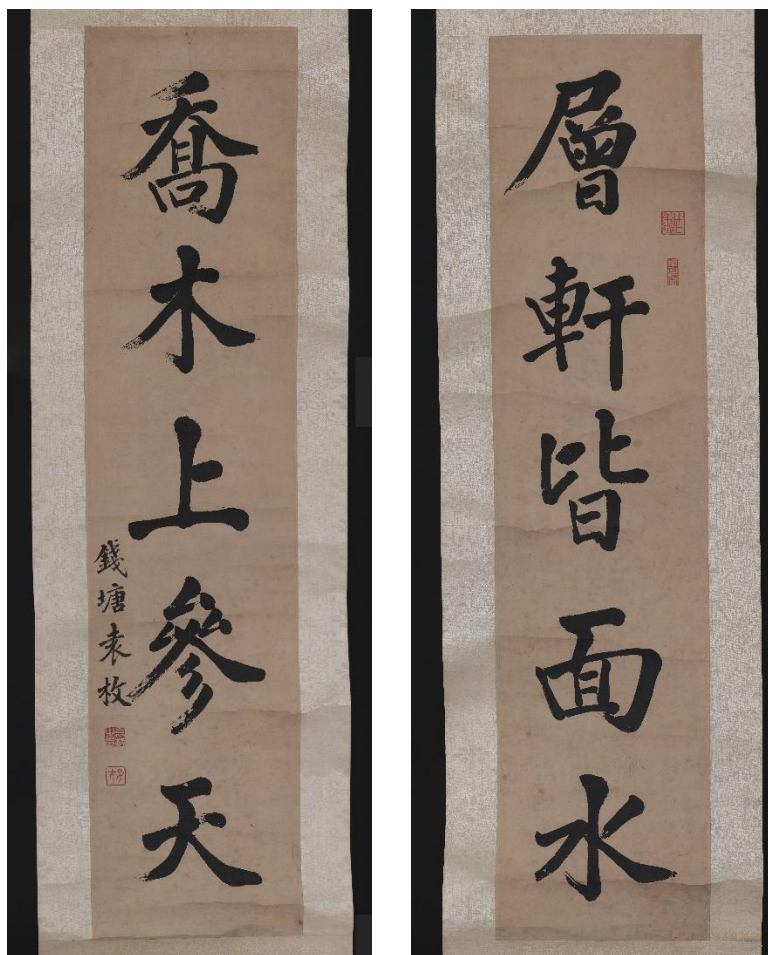 層軒皆面水
喬木上參天
錢塘袁枚